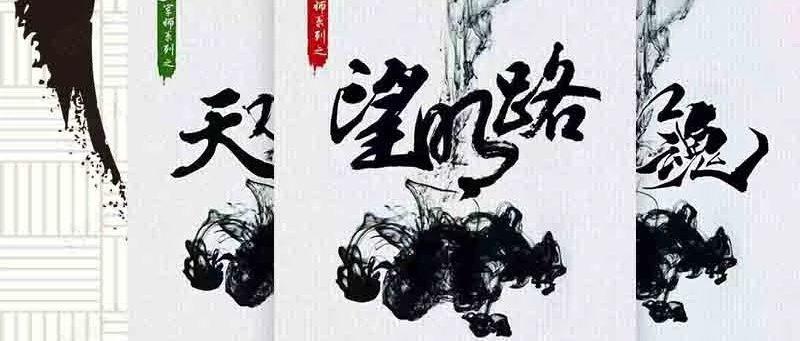 师系列之
天
师系列之
望明路
魂